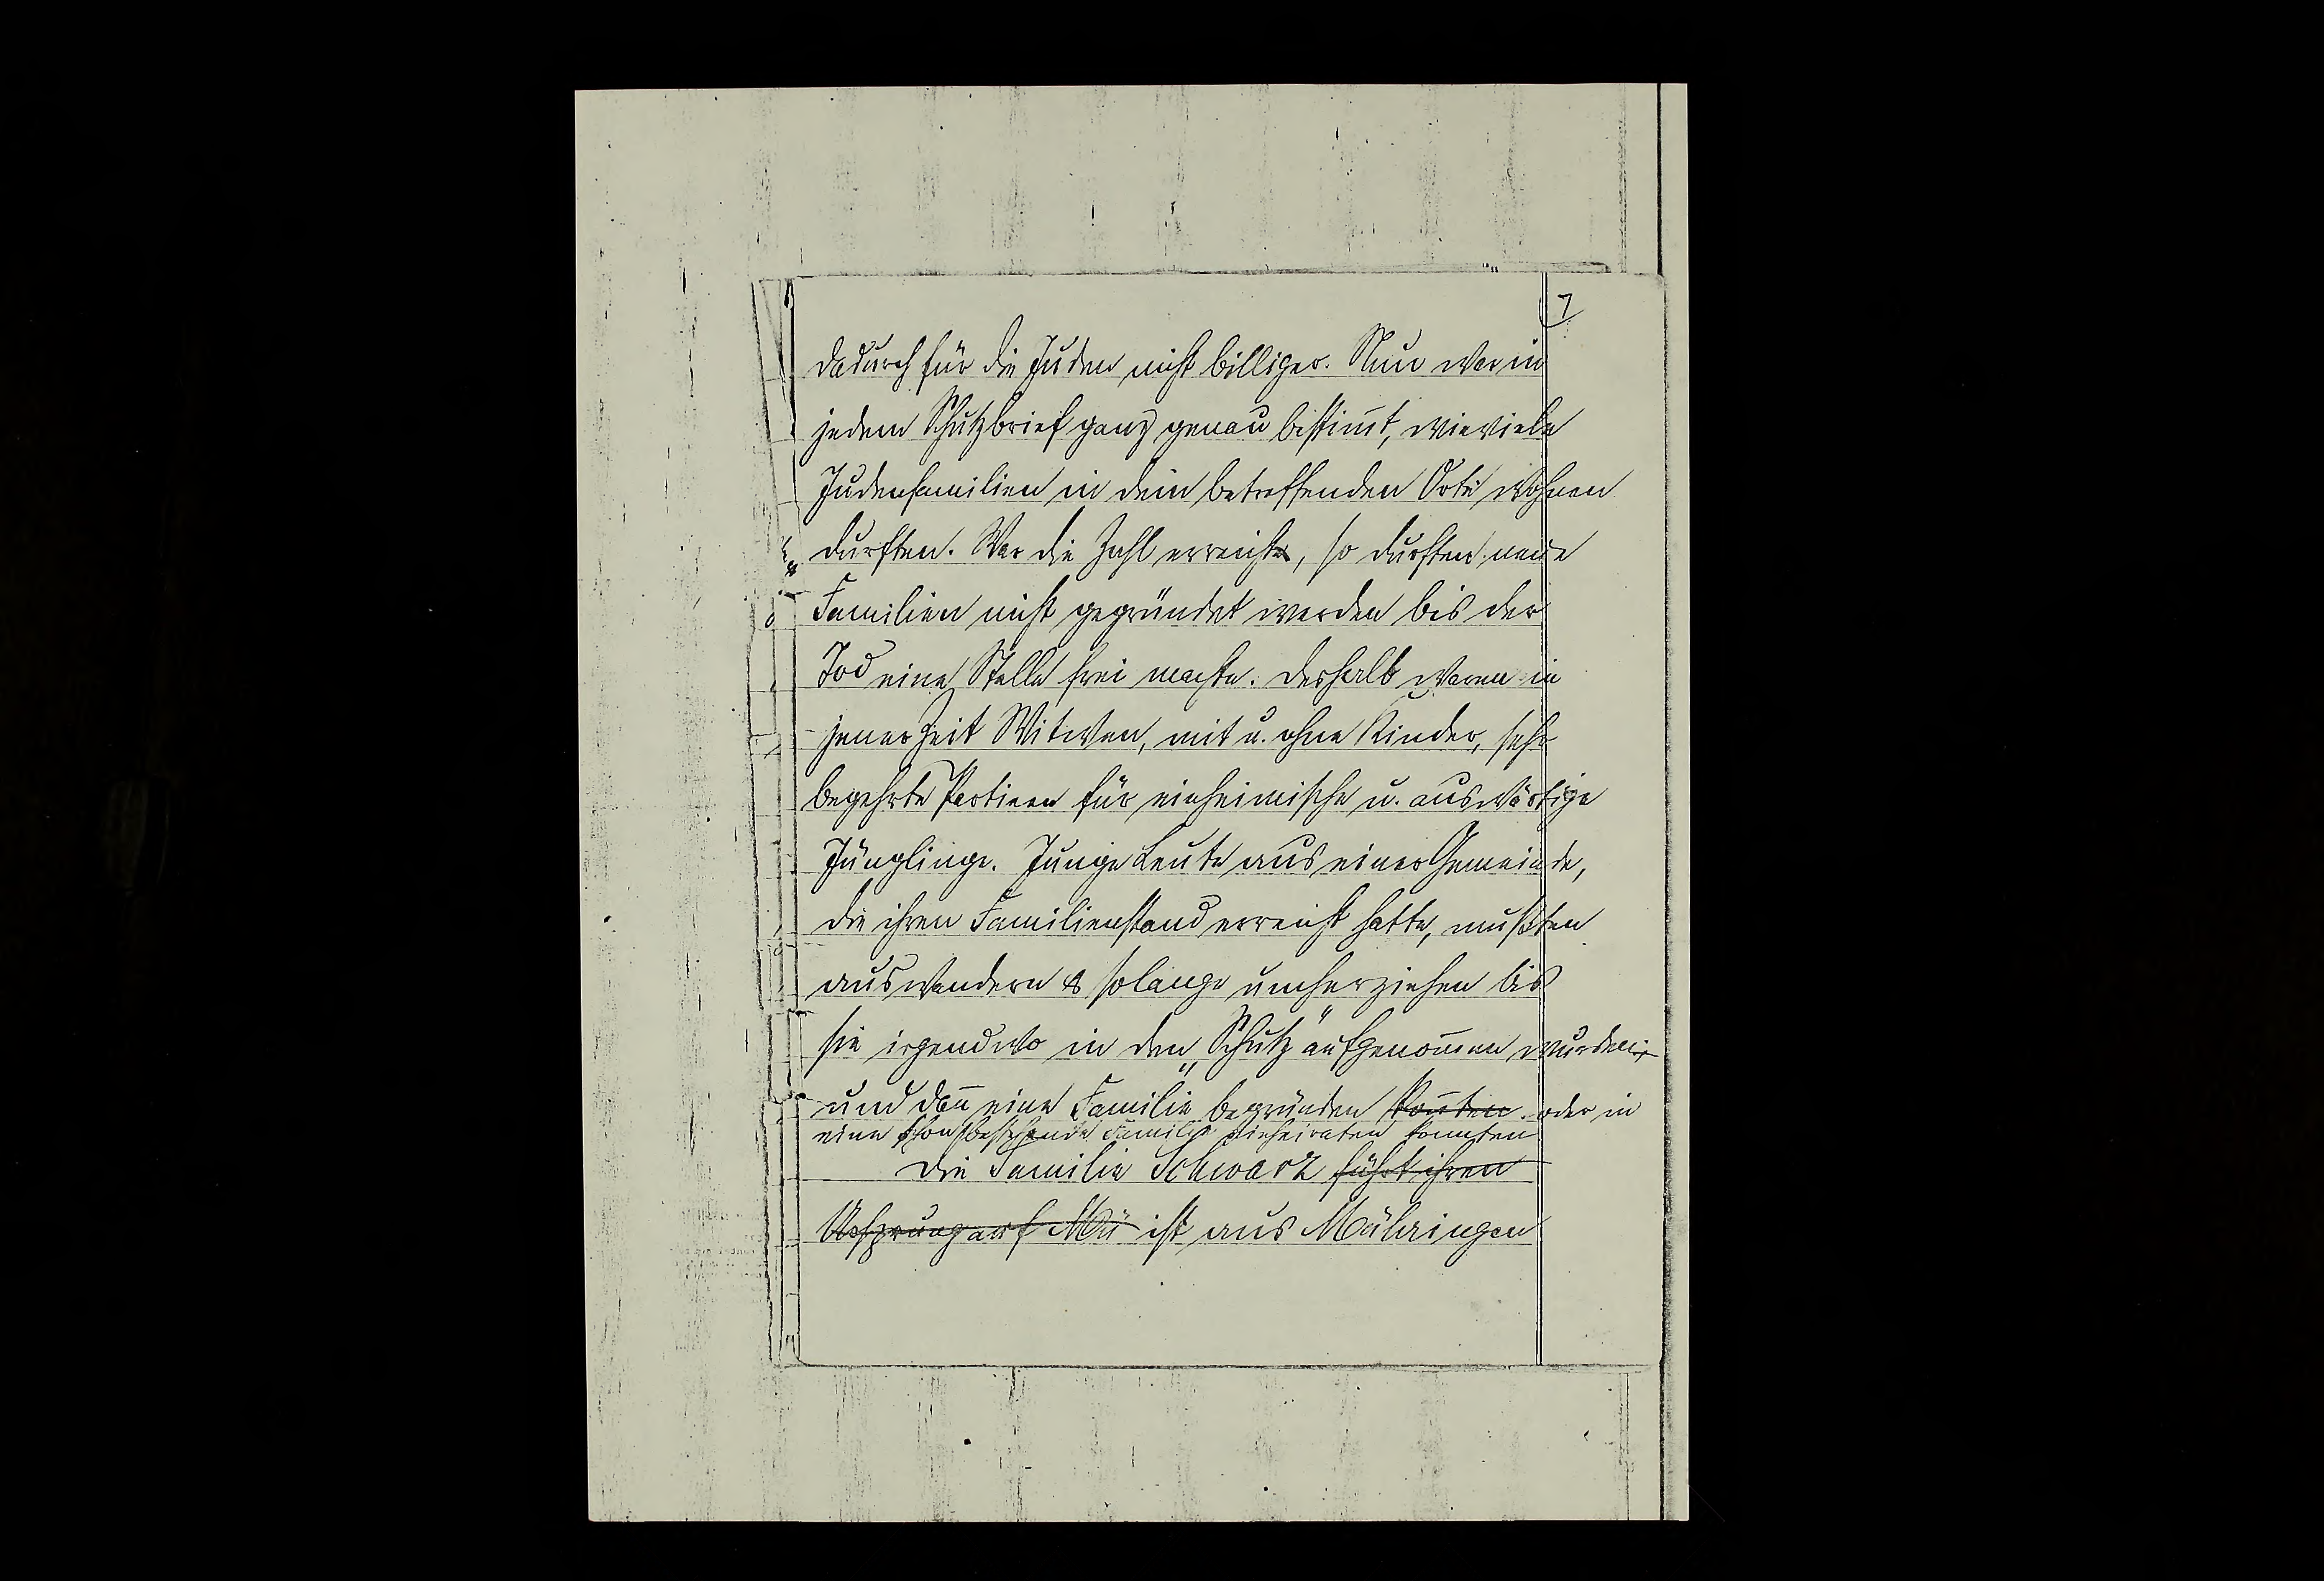 7
dadurch für die Juden nicht billiger. Nun war in
jedem Schutzbrief ganz genau bestim̄t, wieviele
Judenfamilien in dem betreffenden Orte wohnen
durften. War die Zahl erreicht, so durften neue
Familien nicht gegründet werden bis der
Tod eine Stelle frei machte. Deshalb waren in
jener Zeit Witwen, mit u. ohne Kinder, sehr
begehrte Partieen für einheimische u. auswärtige
Jünglinge. Junge Leute aus einer Gemeinde,
die ihren Familienstand erreicht hatte, mußten
auswandern & solange umherziehen bis
sie irgendwo in den „Schutz" aufgenom̄en wurden
und dan̄ eine Familie begründen kon̄ten. oder in
eine schon bestehende Familie einheiraten konnten
Die Familie Schwarz führt ihren
Ursprung auf Mü ist aus Mühringen